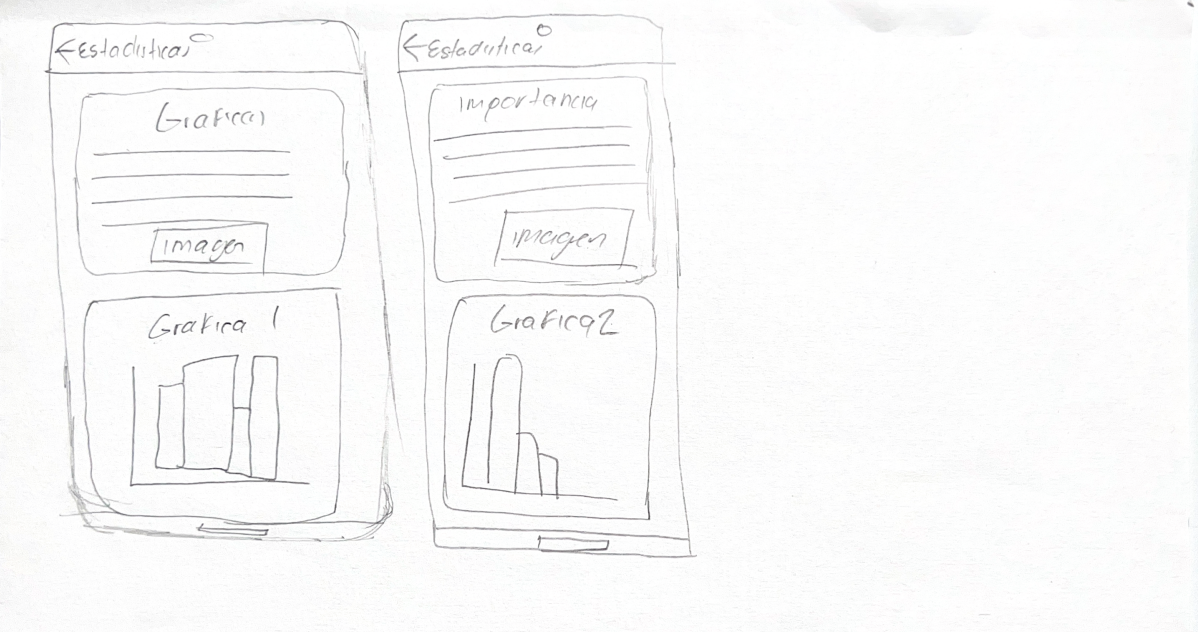 Estadisticas
Grafica1
imagen
Grafica 1
Estadisticas
importancia
imagen
Grafica2